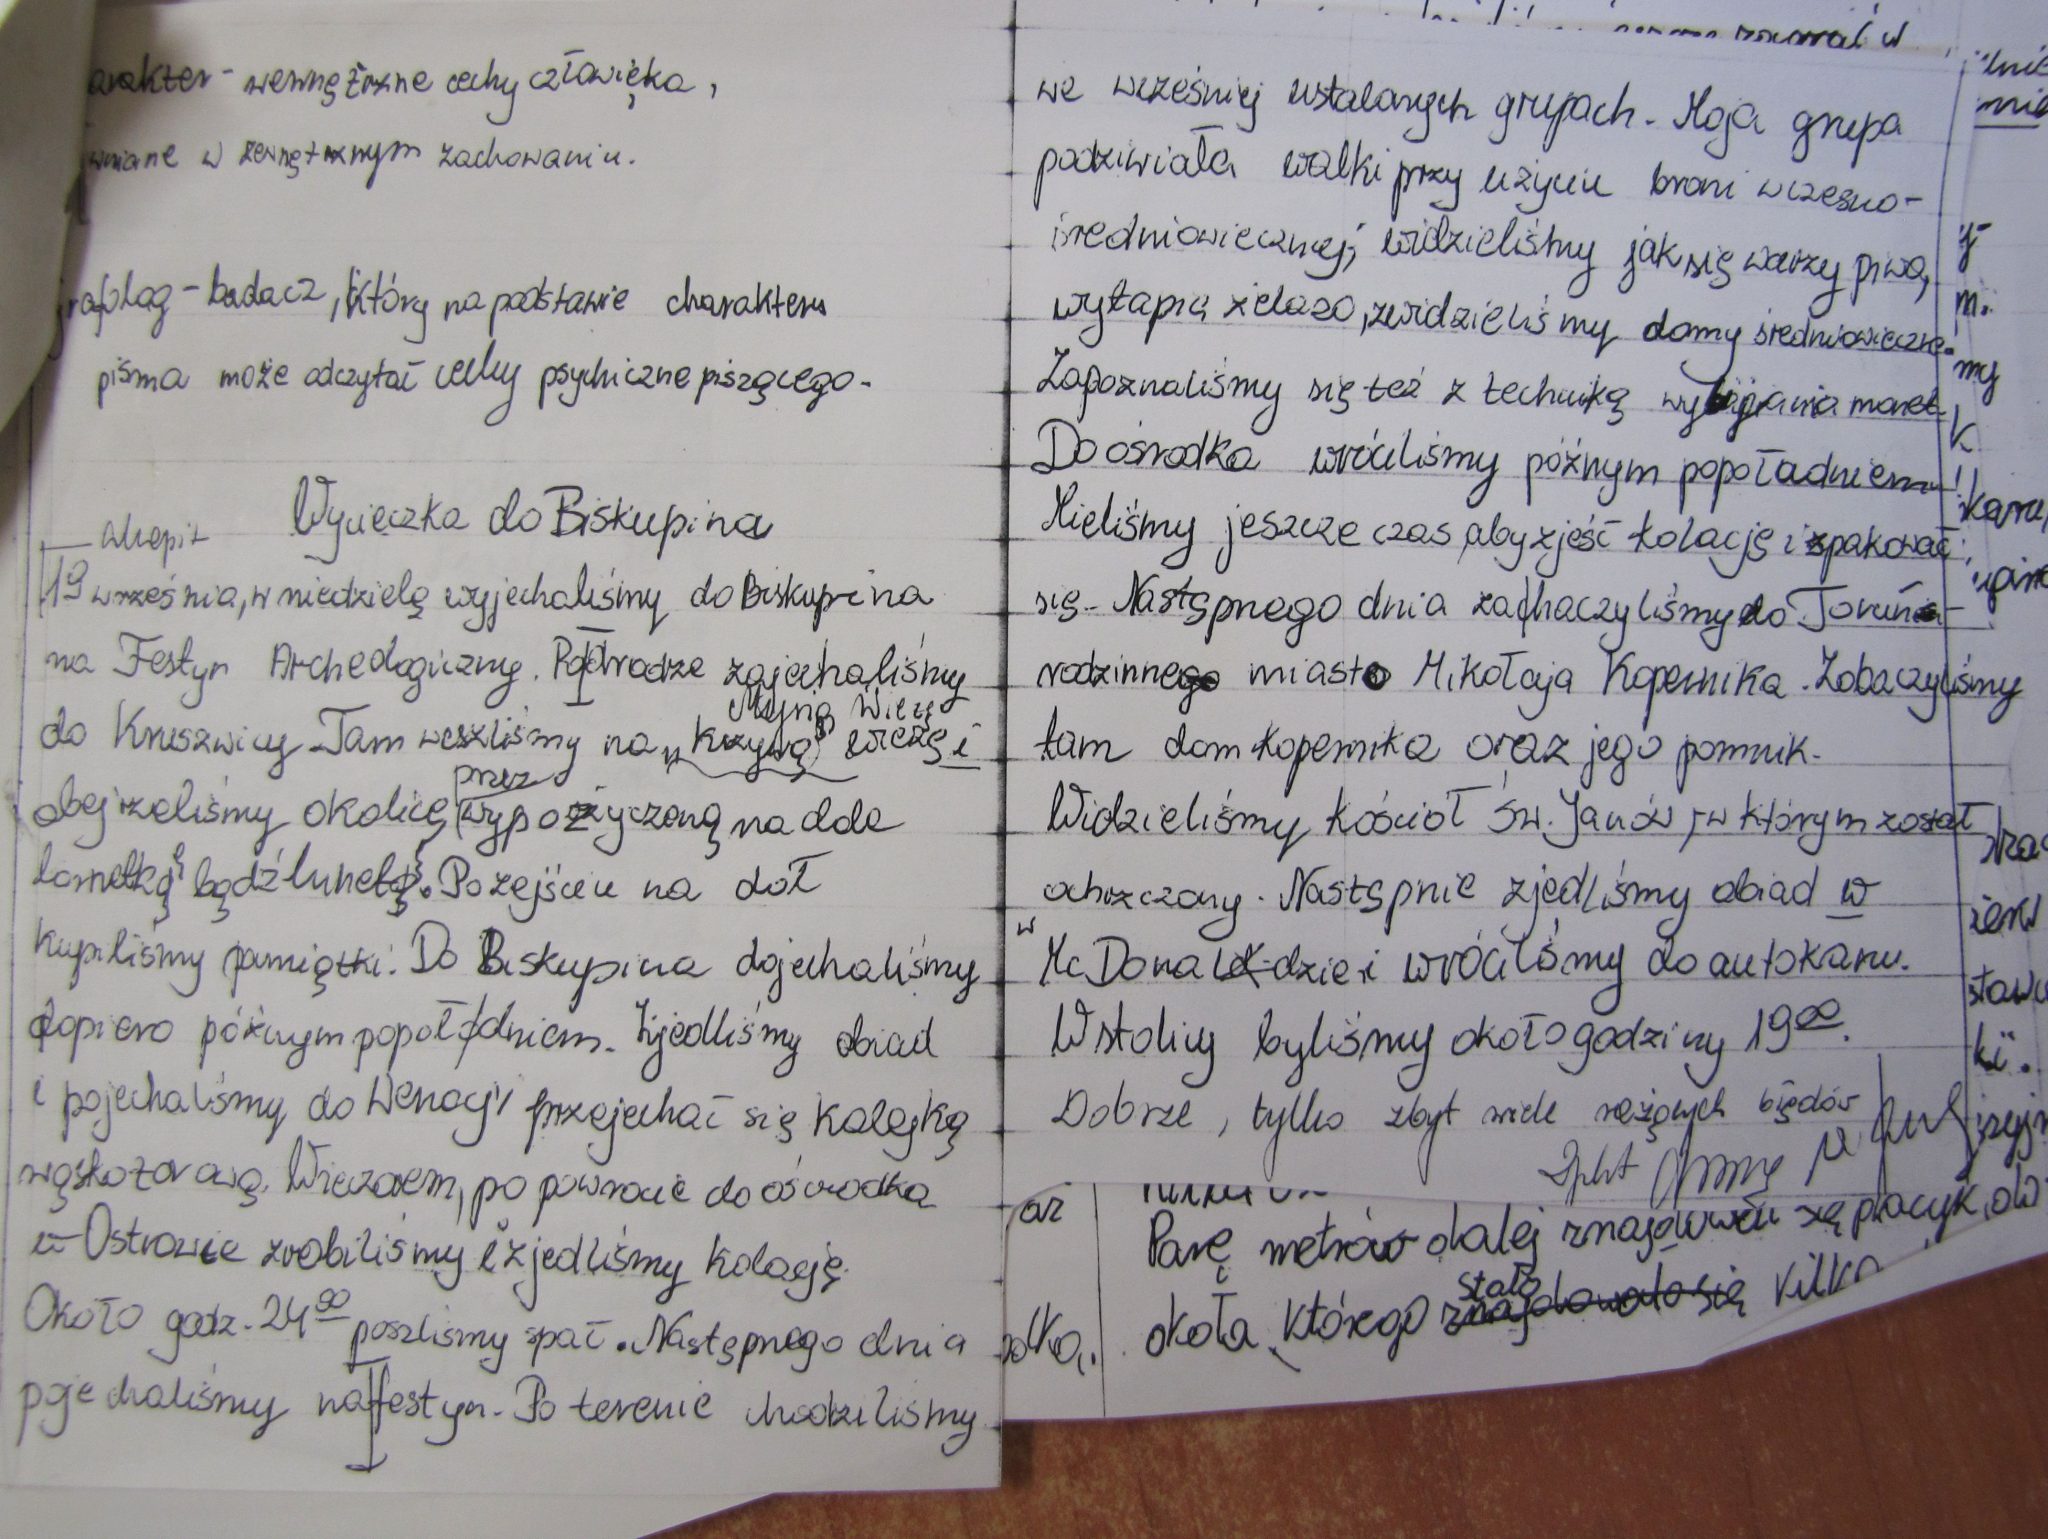 arakter - wewnętrzne cechy człowieka,
w zewnętrznym zachowaniu.
grafolog - badacz, który na podstawie charakteru
pisma może odczytać cechy psychiczne piszącego.
Wycieczka do Biskupina
akapit
19 września, w niedzielę wyjechaliśmy do Biskupina
na Festyn Archeologiczny. Po drodze zajechaliśmy
do Kruszwicy. Tam weszliśmy na „Krzywą" wieżę i
Mysią Wieżę
obejrzeliśmy okolicę wypożyczoną na dole
przez
lornetką bądź lunetą. Po zejściu na dół
kupiliśmy pamiątki. Do Biskupina dojechaliśmy
dopiero późnym popołudniem. Zjedliśmy obiad
i pojechaliśmy do Wenecji przejechać się kolejką
wąskotorową. Wieczorem, po powrocie do ośrodka
w Ostrowie zrobiliśmy i zjedliśmy kolację.
Około godz. 24 00 poszliśmy spać. Następnego dnia
pojechaliśmy na festyn. Po terenie chodziliśmy
we wcześniej ustalonych grupach. Moja grupa
podziwiała walki przy użyciu broni wczesno-
średniowiecznej, widzieliśmy jak się warzy piwo,
wytapia żelazo, zwidzieliśmy domy średniowieczne.
Zapoznaliśmy się też z techniką wybijania monet.
Do ośrodka wróciliśmy późnym popoładniem
Mieliśmy jeszcze czas, aby zjeść kolację i spakować
się. Następnego dnia zachaczyliśmy do Torunia -
rodzinnego miasta Mikołaja Kopernika. Zobaczyliśmy
tam dom Kopernika oraz jego pomnik.
Widzieliśmy kościół św. Janów, w którym został
ochrzczony. Następnie zjedliśmy obiad w
w McDonald-dzie i wróciliśmy do autokaru.
W stolicy byliśmy około godziny 19 00.
Dobrze, tylko zbyt wiele rażących błędów
Parę metrów dalej znajdował się placyk,
stało
okoła którego znajdowało się kilka